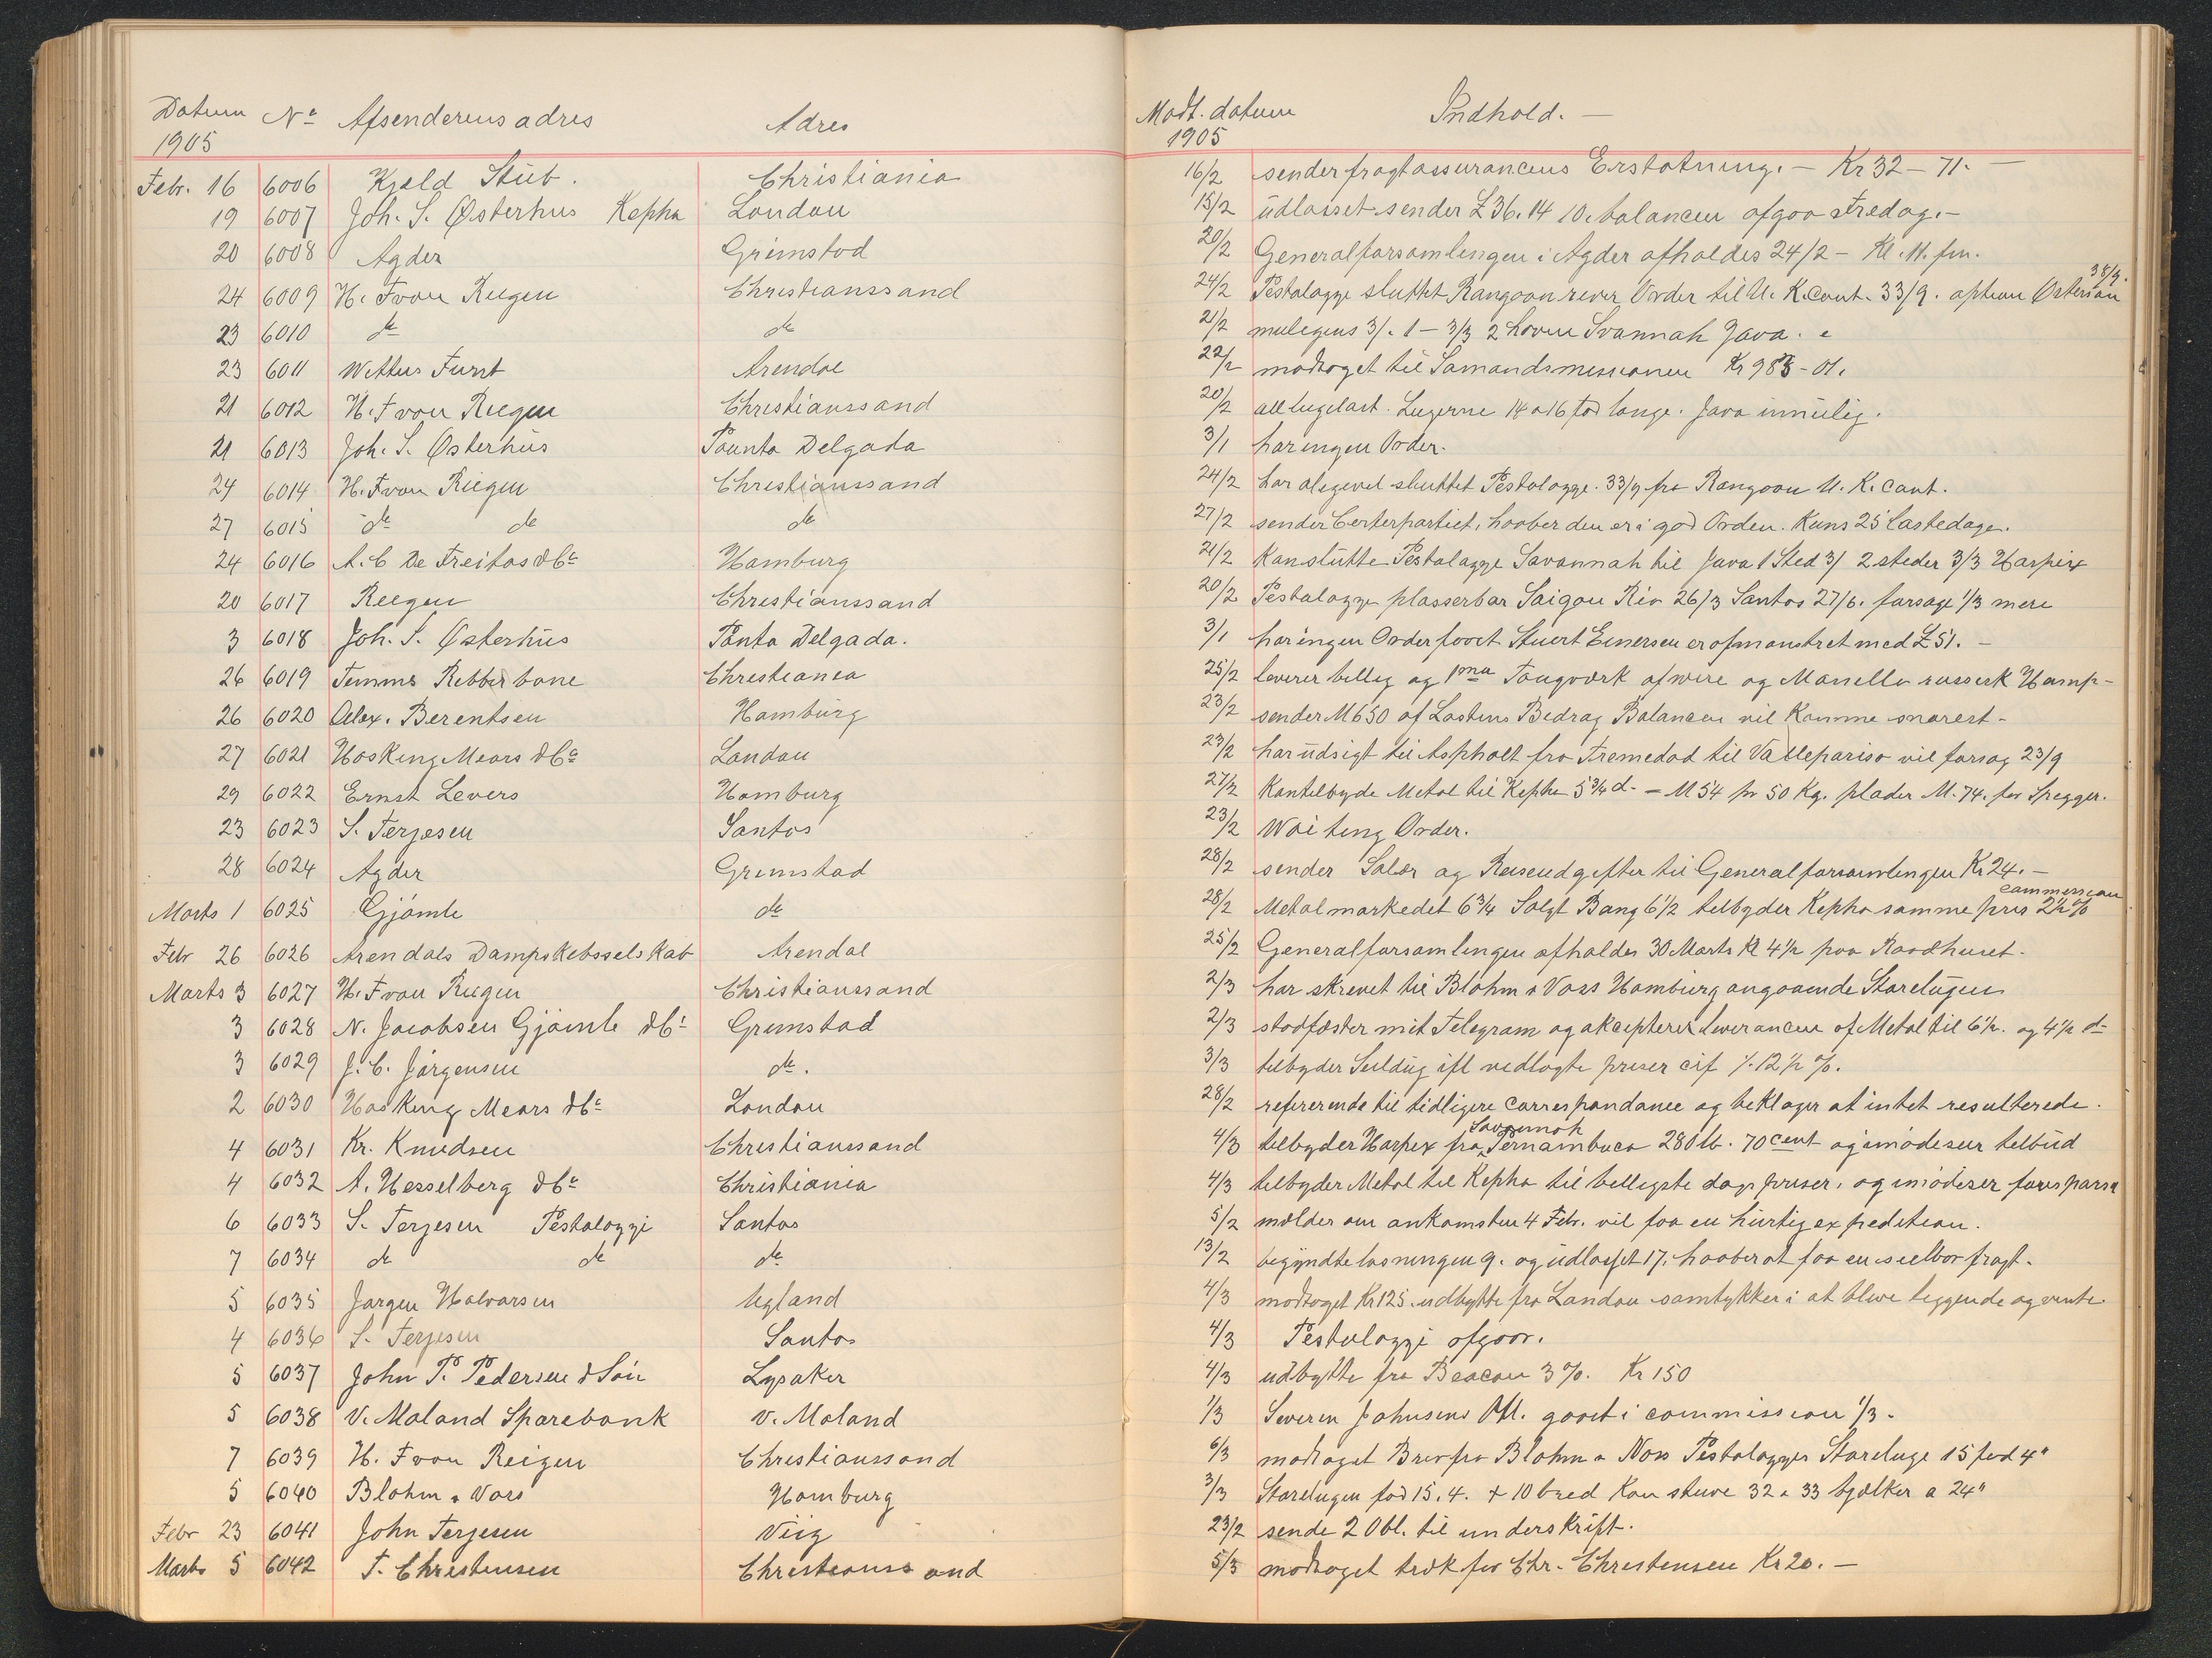 Datum Nº Afsenderens adres Adres
1905
Febr. 16 6006 Kjeld Stub. Christiania
19 6007 Joh. S. Østerhus Kepha London
20 6008 Agder Grimstad
24 6009 H. F von Riegen Christianssand
23 6010 do do
23 6011 Arendal
21 6012 H. F von Riegen Christianssand
21 6013 Joh. S. Østerhus Paunta Delgada
24 6014 H. F von Riegen Christianssand
27 6015 do do do
24 6016 A. C De Freitas & Co Hamburg
20 6017 Riegen Christianssand
3 6018 Joh. S. Østerhus Ponta Delgada.
26 6019 Christiania
26 6020 Alex. Berentsen Hamburg
27 6021 Hosking Mears & Co London
29 6022 Ernst Levers Hamburg
23 6023 S. Terjesen Santos
28 6024 Agder Grimstad
Marts 1 6025 Gjømle do
Febr 26 6026 Arendals Dampskebsselskab Arendal
Marts 3 6027 H. F von Riegen Christianssand
3 6028 N. Jacobsen Gjømle & Co Grimstad
3 6029 J. C. Jørgensen do.
2 6030 Hosking Mears & Co London
4 6031 Kr. Knudsen Christianssand
4 6032 A. Hesselberg & Co Christiania
6 6033 S. Terjesen Pestalozzi Santos
7 6034 do do do
5 6035 Jørgen Halvorsen Ugland
4 6036 S. Terjesen Santos
5 6037 John P. Pedersen & Søn Lysaker
5 6038 V. Moland Sparebank V. Moland
7 6039 H. F von Reigen Christianssand
5 6040 Blohm & Voss Hamburg
Febr 23 6041 John Terjesen Viig
Marts 5 6042 T. Christensen Christianssand
Modt. datum Indhold. —
1905
16/2 sender fragtassurancens Erstatning. — Kr 32 – 71. —
15/2 udlosset sender £ 36. 14 10. balancen afgaa Fredag. –
20/2 Generalforsamlingen i Agder afholdes 24/2 – Kl. 11. fm.
38/9.
24/2 Pestalozzi sluttet Rangoon river Order til U. K. Cont. 33/9. option Østersøen
21/2 muligens 3/. 1 – 3/3 2 havne Svannah Java.
22/2 modtaget til Sømandsmissionen Kr 983 - 01.
20/2 Lugerne 14 a 16 fod lange. Java umulig.
3/1 har ingen Order.
24/2 har aligevel sluttet Pestalozzi. 33/9 fra Rangoon U. K. Cont.
27/2 sender Certepartiet, haaber den er i god Orden. Kuns 25 lastedage.
21/2 Kan slutte Pestalozzi Savannah til Java 1 Sted 3/ 2 steder 3/3 Harpix
20/2 Pestalozzi plasserbar Saigon Rio 26/3 Santos 27/6. forsøge 1/3 mere
3/1 har ingen Order faaet Stuert Einersen er afmønstret med £ 51. –
25/2 leverer billig og 1ma Tougværk af wire og Manilla russerk Hamp –
23/2 sender M 650 af Lastens Bedrag Balancen vil komme snarest –
23/2 har udsigt til Asphalt fra Tremedad til Vallepariso vil forsøg 23/9
27/2 Kan tilbyde Metal til Kepha 5 3/4 d. – M 54 pr 50 Kg. plader M. 74. for Spegger.
23/2 Waiting Order.
28/2 sender Salær og Reiseudgifter til Generalforsamlingen Kr 24. —
commersion
28/2 Metalmarkedet 6 3/4 Solgt Bang 6 1/2 tilbyder Kepha samme pris 2 1/2 %
25/2 Generalforsamlingen afholdes 30 Marts Kl 4 1/2 paa Raadhuset.
2/3 har skrevet til Blohm & Voss Hamburg angaaende Storelugen
2/3 stadfæster mit Telegram og aksepterer leverancen af Metal til 6 1/2. og 4 1/2 d–
3/3 tilbyder Seildug ifl vedlagte priser cif ./. 12 1/2 %.
28/2 refererende til tidligere correspondance og beklager at intet resulterede.
Savannah
4/3 tilbyder Harpix fra Pernambuco 280 lb. 70 cent og imødeseer tilbud
4/3 tilbyder Metal til Kepha til belligste dags priser. og imødeser
5/2 mælder om ankomsten 4 Febr. vil faa en hurtig expedition.
13/2 begyndte losningen 9. og udlosset 17. haaber at faa en seelbar fragt.
4/3 modtaget Kr 125. udbytte fra London samtykker i at blive liggende og vente
4/3 Pestalozzi afgaar.
4/3 udbytte fra Beacon 3 %. Kr 150
1/3 Severin Johnsens Obl. gaaet i commission 1/3.
6/3 modtaget Brev fra Blohm & Voss Pestalozzis Storeluge 15 fod 4"
3/3 Storelugen fod 15. 4. + 10 bred Kan stuve 32 a 33 bjælker a 24"
23/2 sende 2 Obl. til underskrift.
5/3 modtaget træk for Chr. Christensen Kr 20. —